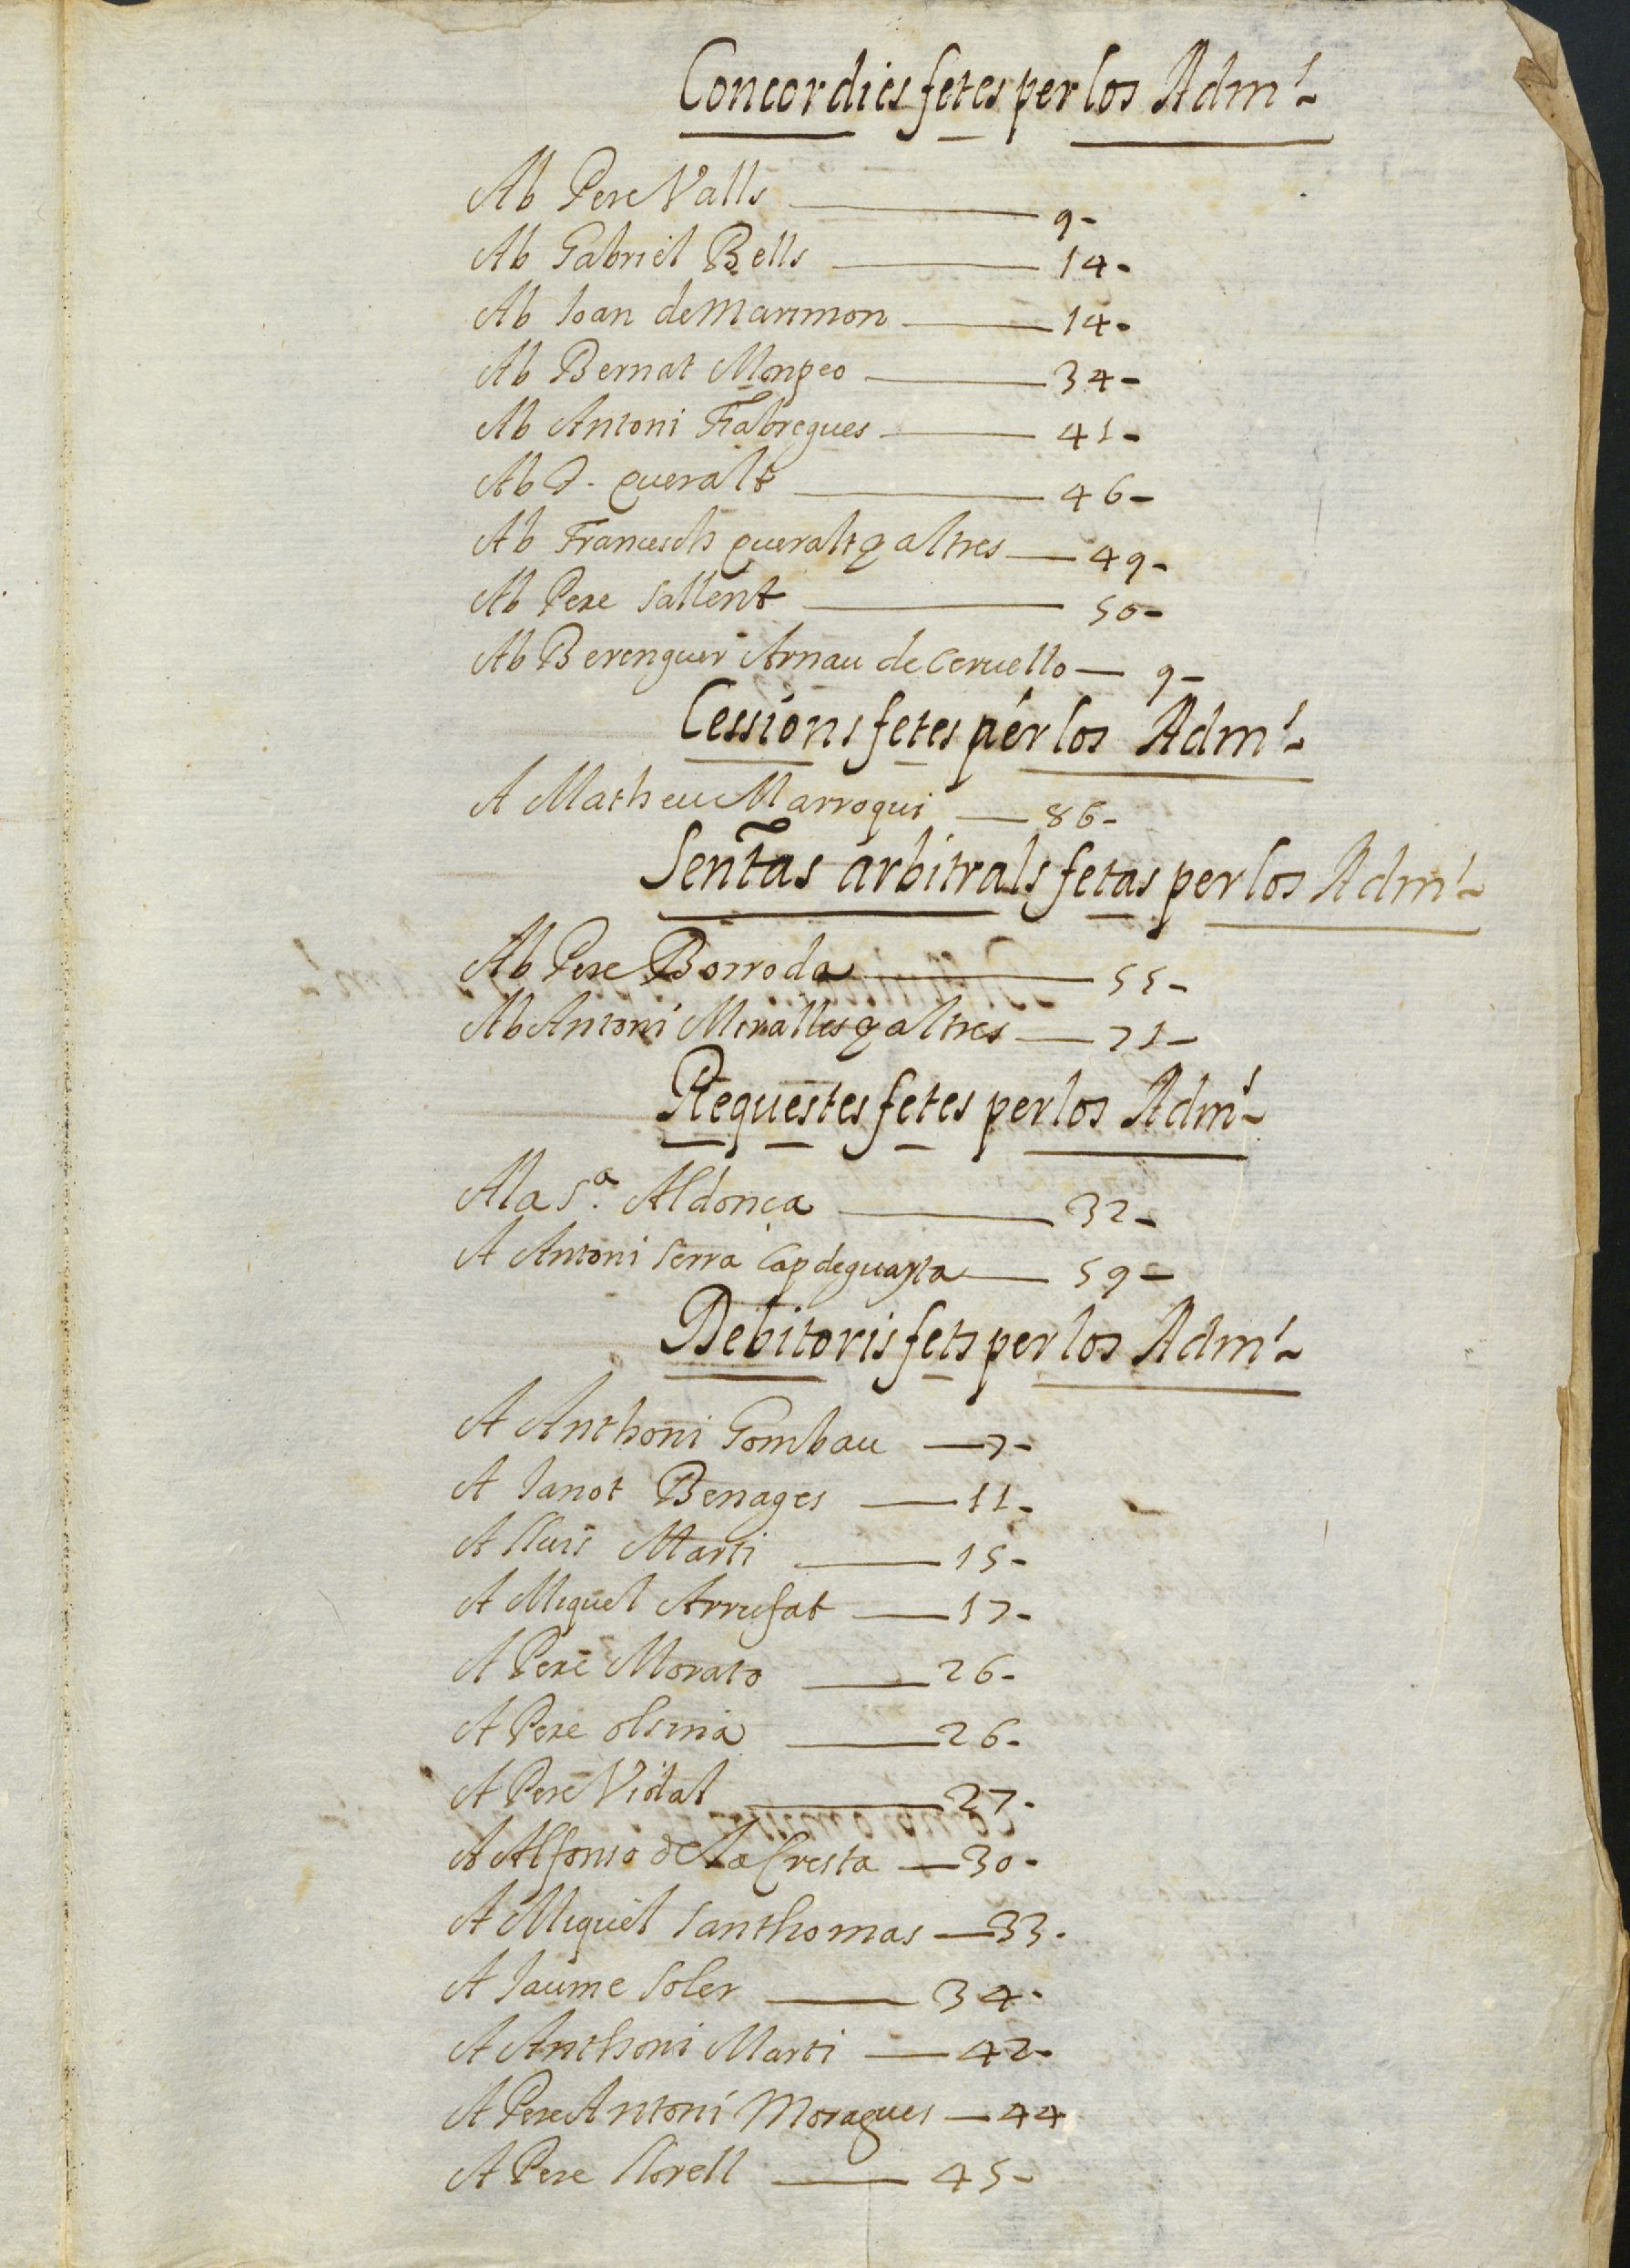 Concordies fetes per los Adm.ˢ
Ab Pere Valls — 9-
Ab Gabriel Bells — 14-
Ab Joan de Marimon — 14-
Ab Bernat Monpeo — 34-
Ab Antoni Fabregues — 41-
Ab D. queralt — 46-
Ab Francesch queralt y altres — 49-
Ab Pere Sallent — 50-
Ab Berenguer Arnau de Ceruello — 9-
Cessions fetes per los Adm.ˢ
A Matheu Marroqui — 86-
Sentas arbitrals fetas per los Adm.ˢ
Ab Pere Borroda — 55-
Ab Antoni Miralles y altres — 71-
Requestes fetes per los Adm.ˢ
A la S.ª Aldonça — 32-
A Antoni Serra Cap deguayta — 59-
Debitoris fets per los Adm.ˢ
A Anthoni Gombau — 7-
A Janot Benages — 11-
A lluis Marti — 15-
A Miquel Arrufat — 17-
A Pere Morato — 26-
A Pere Olsina — 26-
A Pere Vidal — 27-
A Alfonso de La Cresta — 30-
A Miquel Santhomas — 33-
A Jaume Soler — 34-
A Anthoni Marti — 42-
A Pere Antoni Moragues — 44
A Pere llorell — 45-